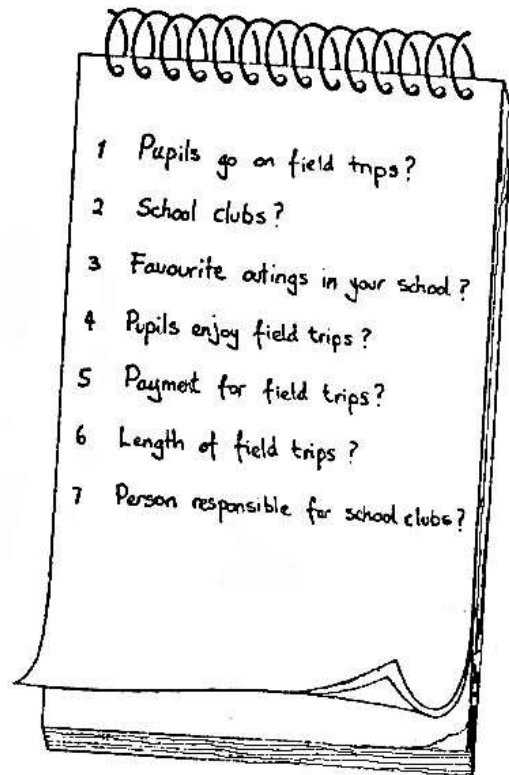 1 Pupils go on field trips?
2 School clubs?
3 Favourite outings in your school?
4 Pupils enjoy field trips?
5 Payment for field trips?
6 Length of field trips?
7 Person responsible for school clubs?